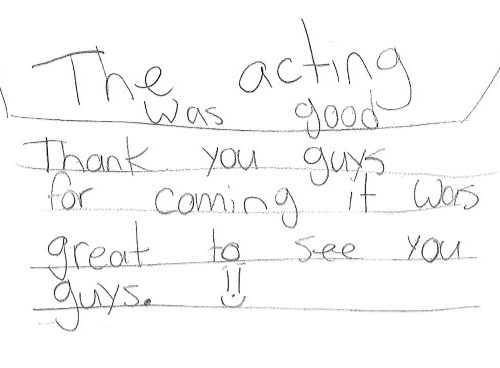 The acting
was good
Thank you guys
for coming it was
great to see you
guys. !!